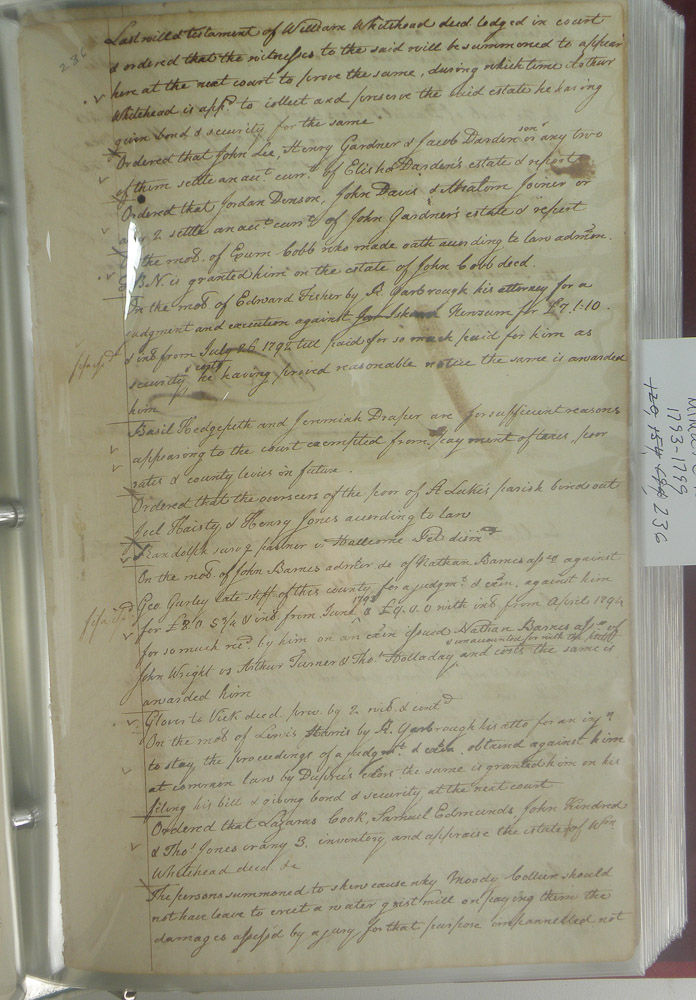 236
Last will & testament of William Whitehead deed lodged in court
& ordered that the witnesses to the said will be summoned to appear
here at the next court to prove the same, during which time Arthur
Whitehead is appd. to collect and preserve the said estate he having
given bond & security for the same.
Ordered that John Lee, Henry Gardner & Jacob Darden son or any two
of them settle an acct. currt. of Elisha Darden's estate & report
Ordered that Jordan Denson, John Davis & Absalom Joiner or
any 2 settle an acct. currt. of John Gardner's estate & report
the mo. of Exum Cobb who made oath according to law admon.
D.B.N. is granted him on the estate of John Cobb deed.
On the mo. of Edward Fisher by R. Yarbrough his attorney for a
judgment and execution against Newsum for £7.1.10.
& int. from July 26 1792 till paid for so much paid for him as
security & costs he having proved reasonable notice the same is awarded
him
Basil Hedgepeth and Jeremiah Draper are for sufficient reasons
appearing to the court exempted from payment of taxes, poor
rates & county levies in future.
Ordered that the overseers of the poor of St Luke's parish bind out
Joel Haisty & Henry Jones according to law
Randolph surv. partner vs Hallcome Pet. dismd.
On the mo. of John Barnes admor de of Nathan Barnes against
Geo Gurley late shff of this county for a judgmt. & exn. against him
for £8.0.5¾ & int. from June 1793 & £4.4.0 with int from April 1794
for so much recd. by him on an exn issued Nathan Barnes of
John Wright vs Arthur Turner & Thos. Holladay & unaccounted for with the and costs the same is
awarded him
Glover to Vick deed. prov. by 2 wits. & contd.
On the mo of Lewis Harris by R. Yarbrough his atto for an injn.
to stay the proceedings of a judgmt. & exon. obtained against him
at common law by Dupree's exors the same is granted him on his
filing his bill & giving bond & security at the next court
Ordered that Lazarus Cook, Samuel Edmunds, John Kindred
& Thos. Jones or any 3. inventory and appraise the estate of Wm
Whitehead deed. &c
The persons summoned to shew cause why Moody Cobb should
not have leave to erect a water grist mill on paying them the
damages assess'd by a jury for that purpose impannelled not
1793-1799
236